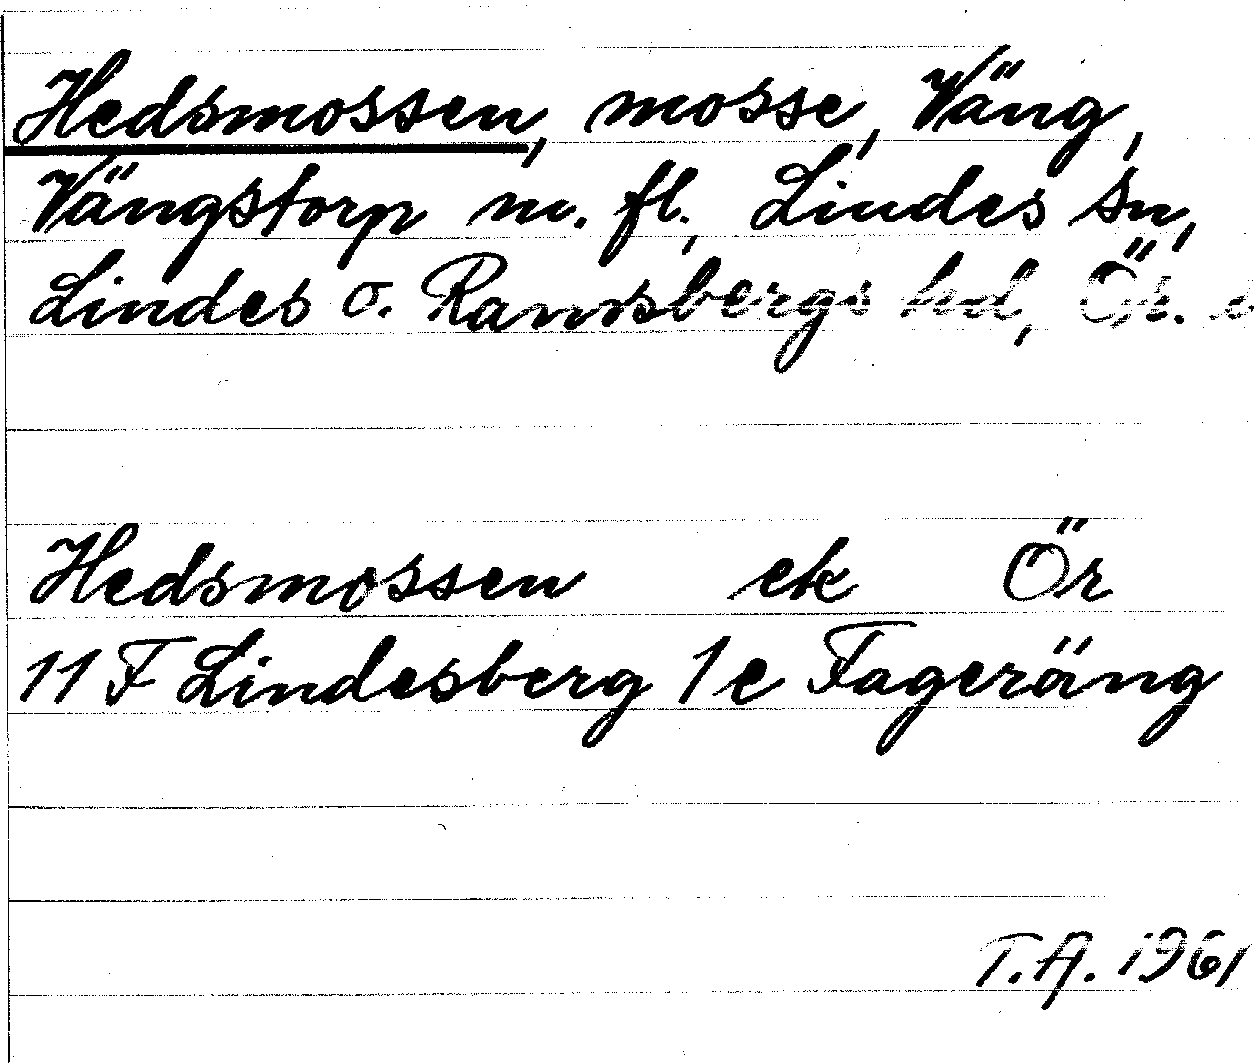 Hedsmossen, mosse, Väng,
Vängstorp m. fl., Lindes sn,
Lindes o. Ramsbergs hd, Ör. l
Hedsmossen ek Ör
11 F Lindesberg 1 e Fageräng
T.A. 1961